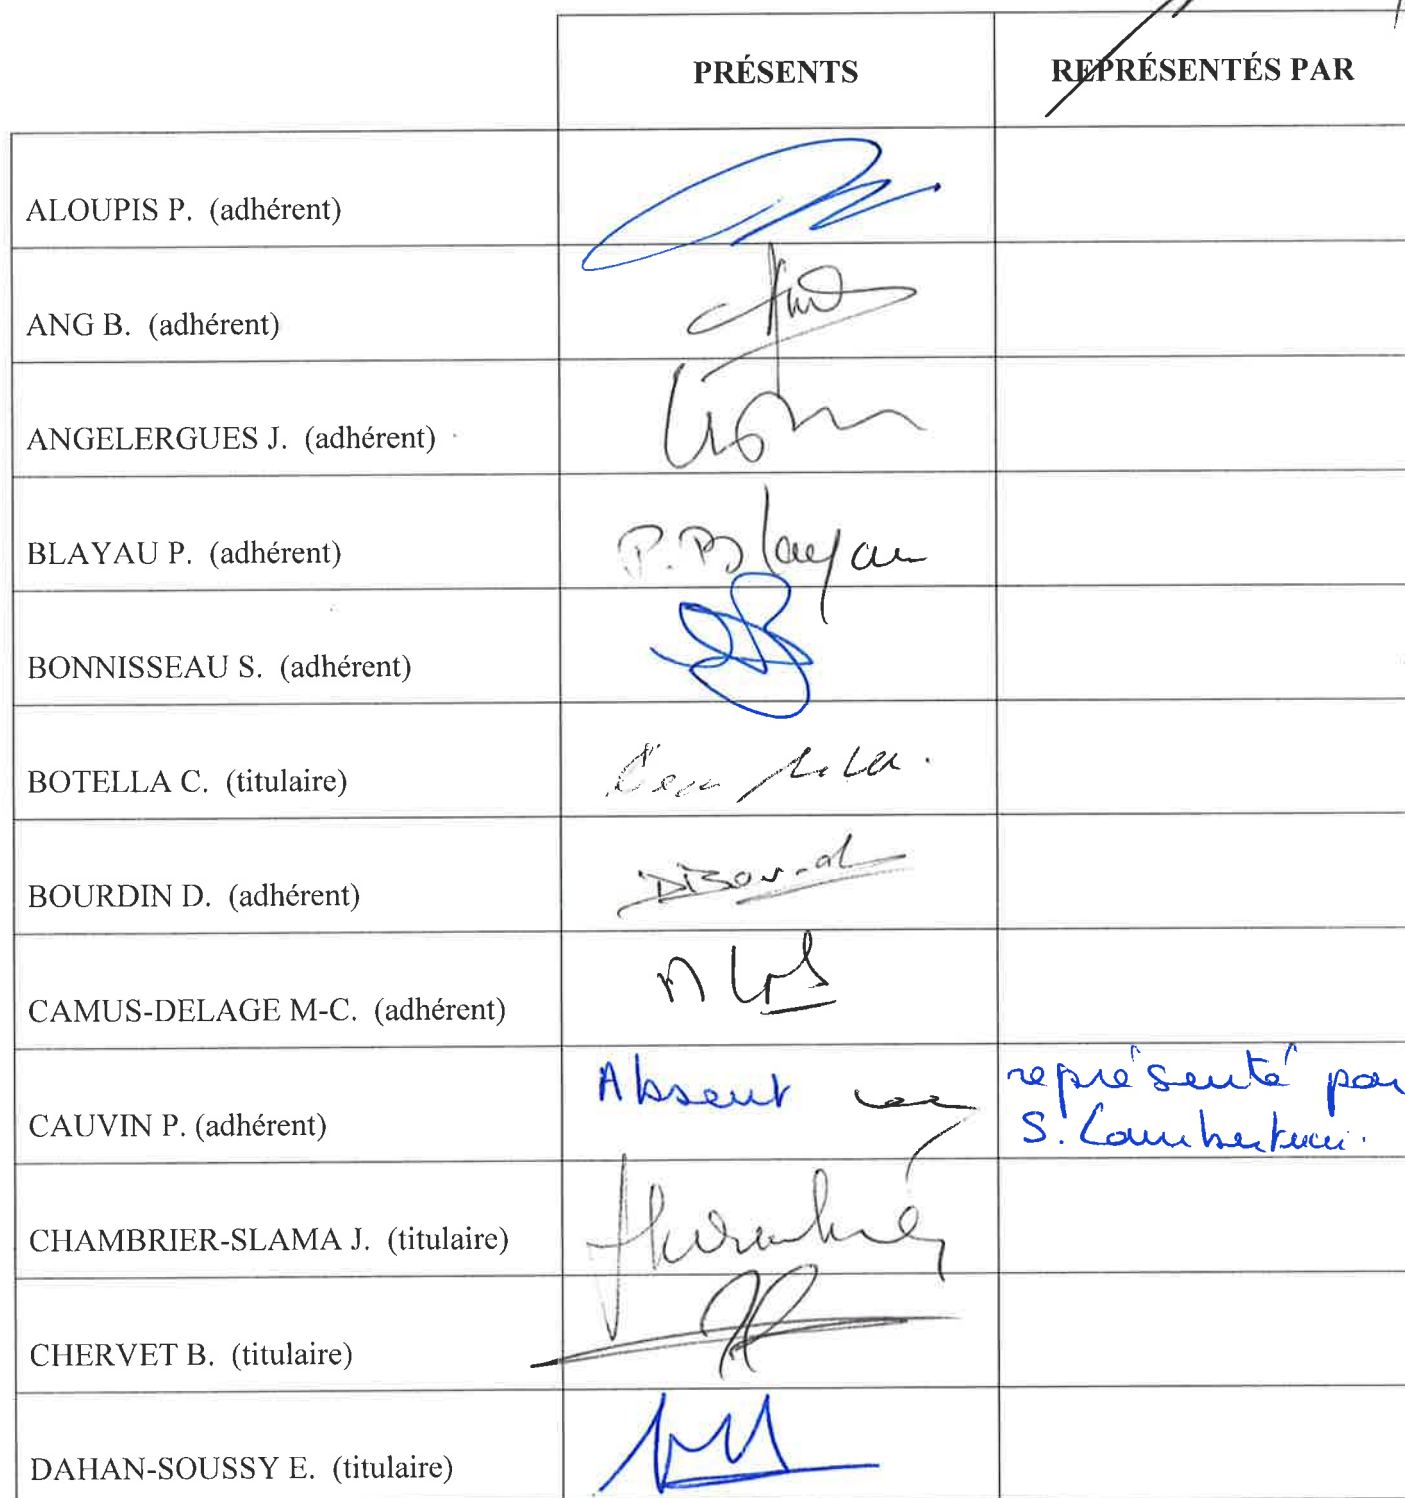 PRÉSENTS REPRÉSENTÉS PAR
ALOUPIS P. (adhérent)
ANG B. (adhérent)
ANGELERGUES J. (adhérent)
BLAYAU P. (adhérent) P. Blayau
BONNISSEAU S. (adhérent)
BOTELLA C. (titulaire)
BOURDIN D. (adhérent)
CAMUS-DELAGE M-C. (adhérent)
CAUVIN P. (adhérent) Absent représenté par
S.
CHAMBRIER-SLAMA J. (titulaire)
CHERVET B. (titulaire)
DAHAN-SOUSSY E. (titulaire)